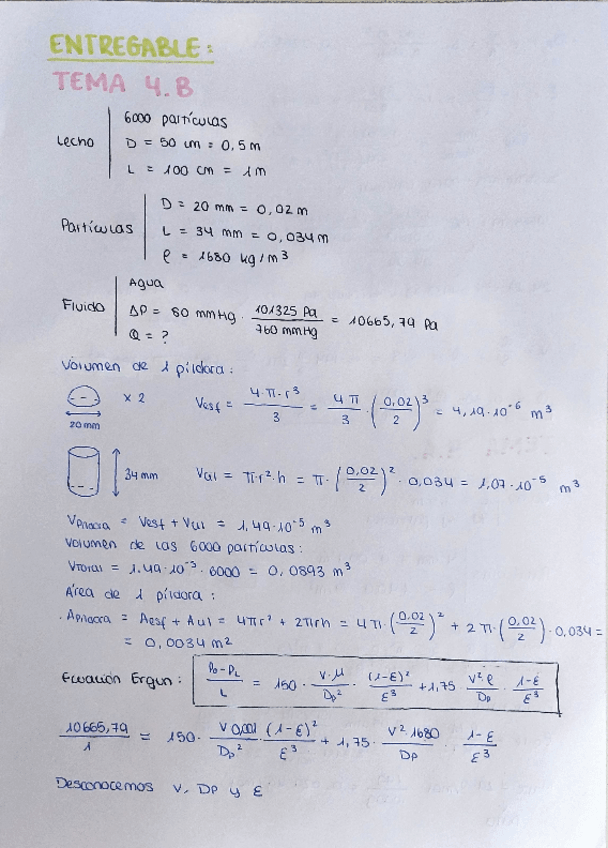 ENTREGABLE:
TEMA 4.B
Lecho
6000 partículas
D = 50 cm = 0,5 m
L = 100 cm = 1 m
Partículas
D = 20 mm = 0,02 m
L = 34 mm = 0,034 m
ρ = 1680 kg/m³
Fluido
Agua
ΔP = 80 mmHg · 101325 Pa / 760 mmHg = 10665,79 Pa
Q = ?
Volumen de 1 píldora:
20 mm
x 2
Vesf = 4·π·r³ / 3 = 4π / 3 · (0,02 / 2)³ = 4,19·10⁻⁶ m³
34 mm
Vcil = π·r²·h = π·(0,02 / 2)² · 0,034 = 1,07·10⁻⁵ m³
Vpíldora = Vesf + Vcil = 1,49·10⁻⁵ m³
Volumen de las 6000 partículas:
Vtotal = 1,49·10⁻⁵ · 6000 = 0,0893 m³
Área de 1 píldora:
· Apíldora = Aesf + Acil = 4πr² + 2πrh = 4π·(0,02 / 2)² + 2π·(0,02 / 2)·0,034 =
= 0,0034 m²
Ecuación Ergun: P₀-P_L / L = 150 · V·μ / Dp² · (1-ε)² / ε³ + 1,75 V²·ρ / Dp · 1-ε / ε³
10665,79 / 1 = 150 · V 0,001 / Dp² · (1-ε)² / ε³ + 1,75 · V² 1680 / Dp · 1-ε / ε³
Desconocemos V, Dp y ε